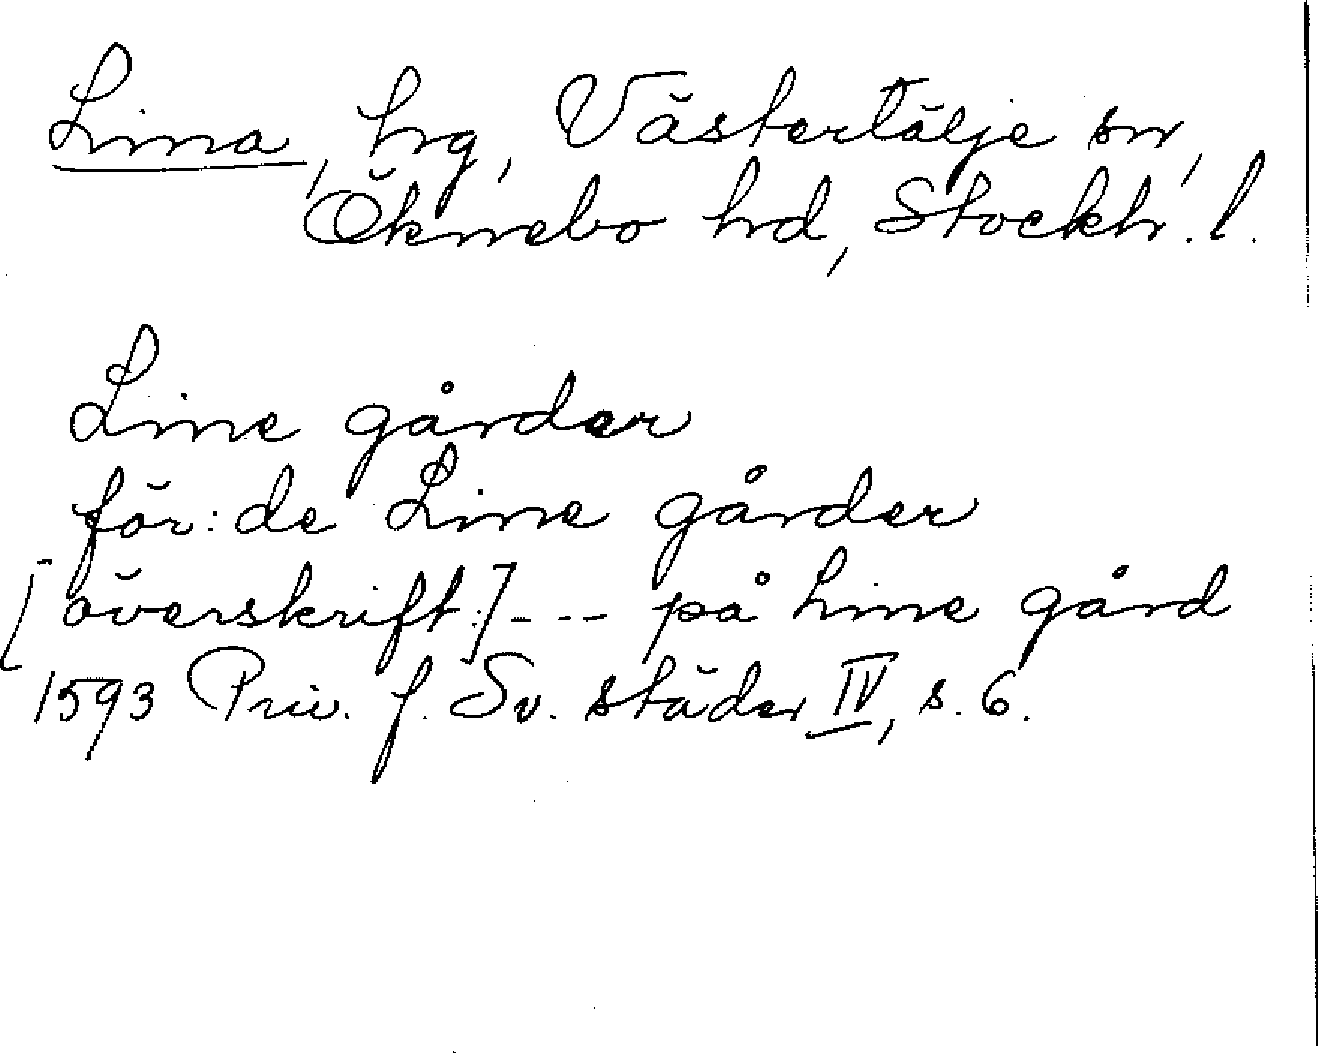 Lina, hrg, Västertälje sn,
Öknebo hd, Stockh. l.
Line gårder
för: de Line gårder
[överskift:] --- på hine gård
1593 Priv. f. Sv. städer IV, s. 6.